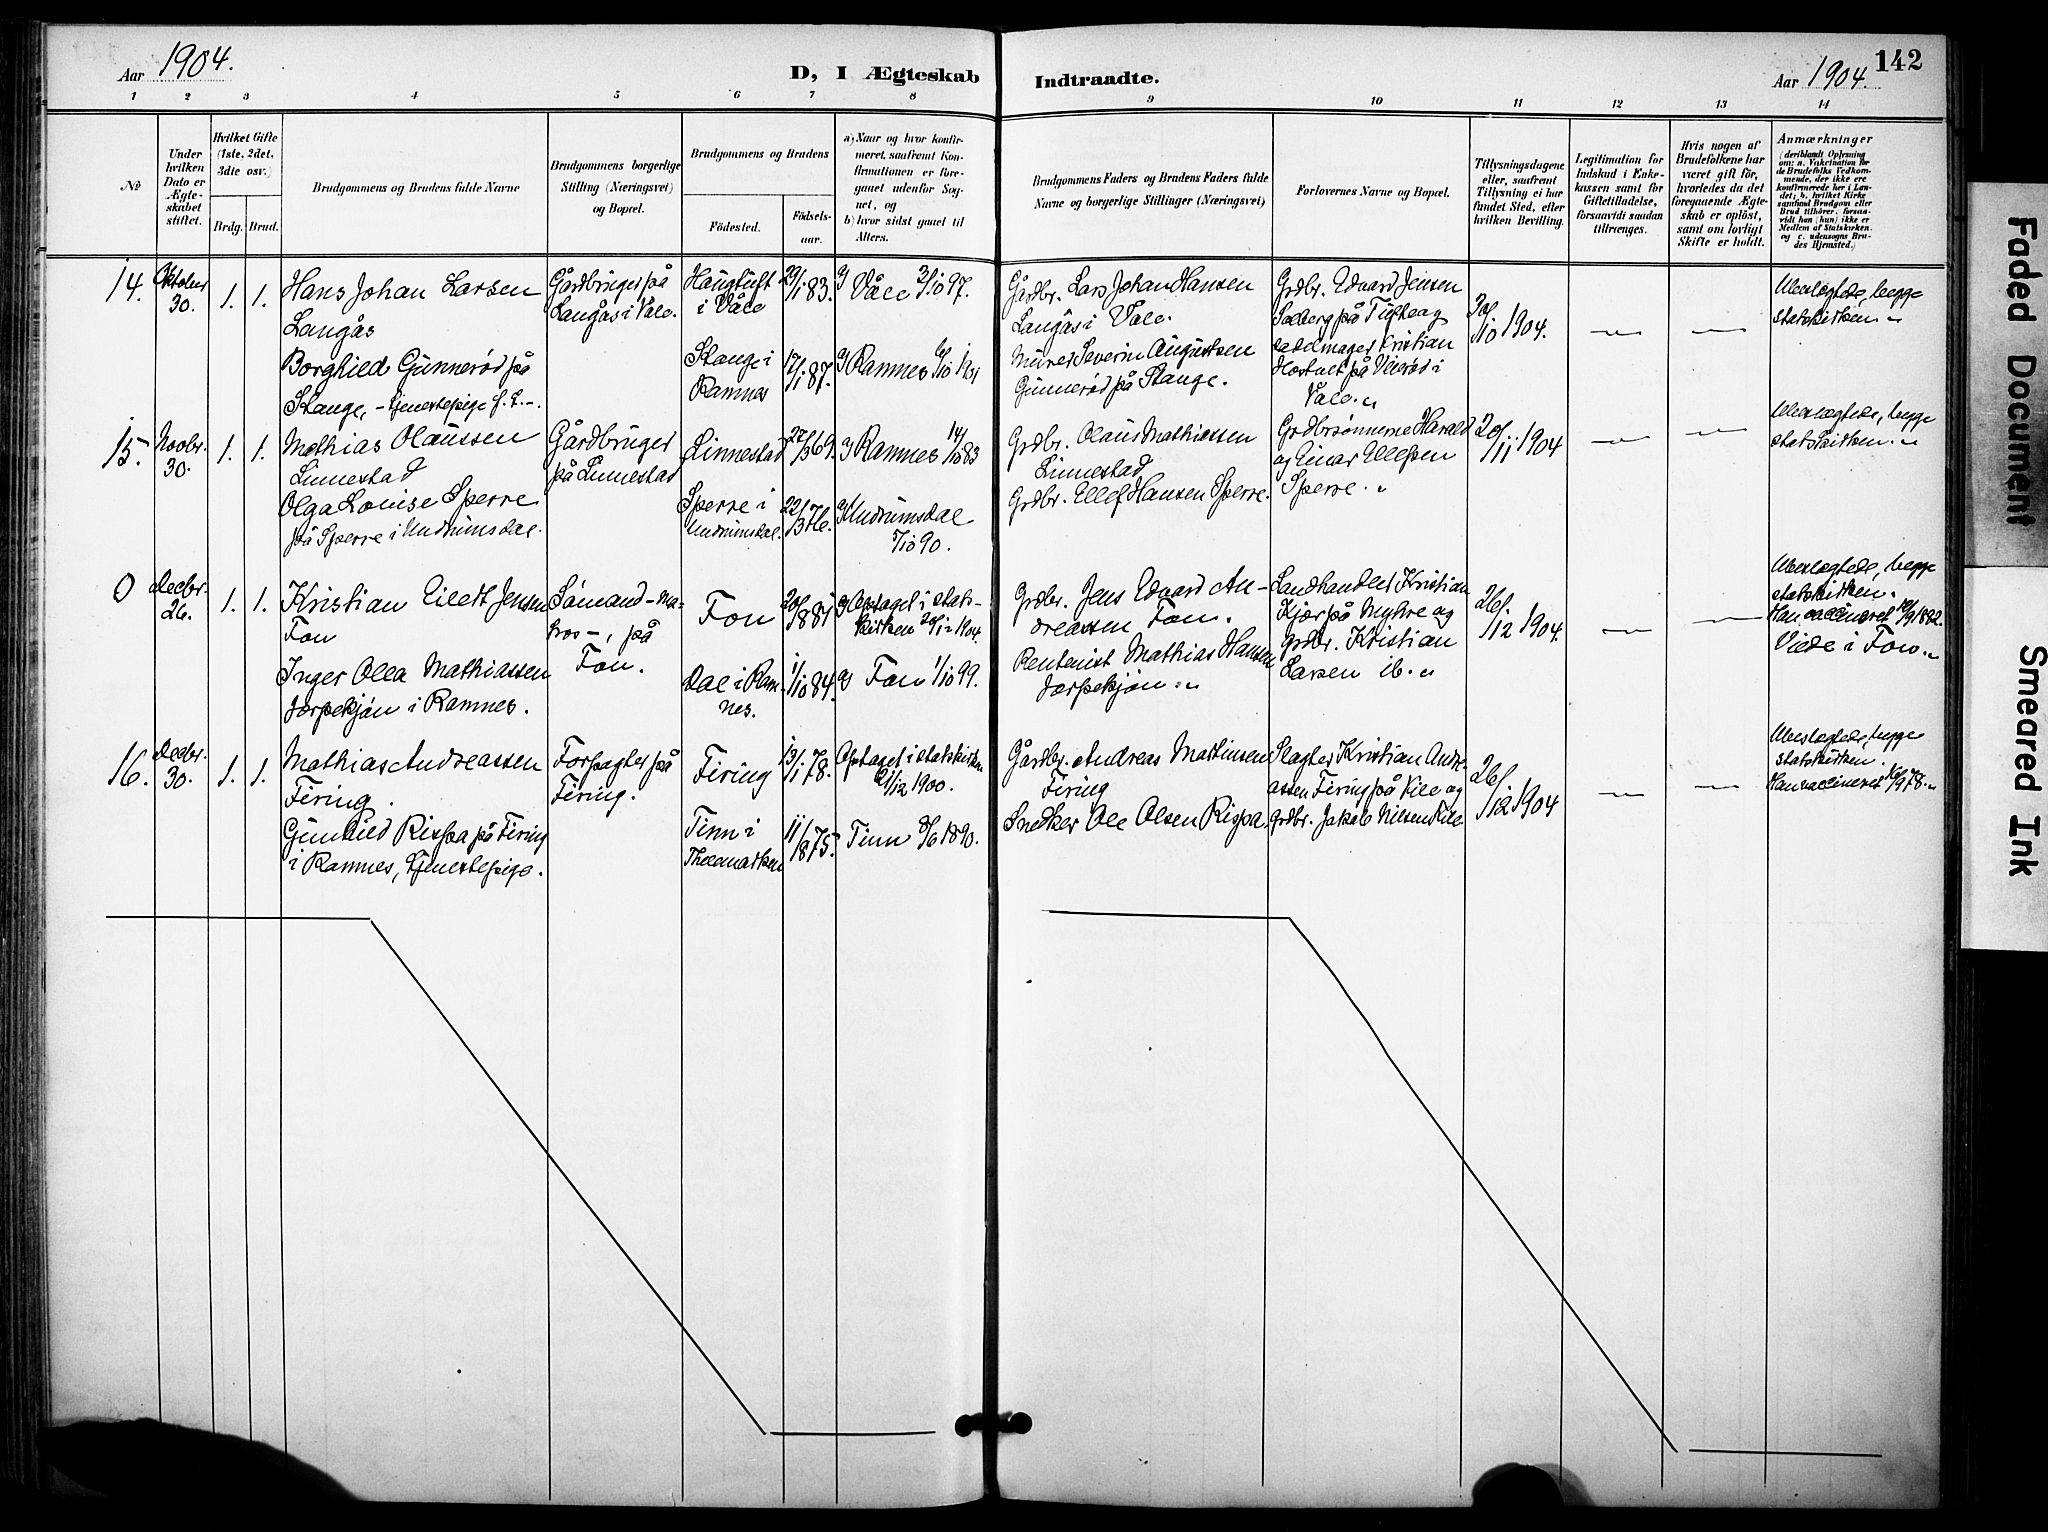 Aar 1904.
D, I Ægteskab
Indtraadte.
Aar 1904.
142
1 2 3 4 5 6 7 8 9 10 11 12 13 14
№
Under
hvilken
Dato er
Ægte-
skabet
stiftet.
Hvilket Gifte
(1ste, 2det,
3dte osv.)
Brdg. Brud.
Brudgommens og Brudens fulde Navne
Brudgommens borgerlige
Stilling (Næringsvei)
og Bopæl.
Brudgommens og Brudens
Födested.
Födsels-
aar.
a) Naar og hvor konfir-
meret, saafremt Kon-
firmationen er fore-
gaaet udenfor Sog-
net, og
b) hvor sidst gaaet til
Alters.
Brudgommens Faders og Brudens Faders fulde
Navne og borgerlige Stillinger (Næringsvei)
Forlovernes Navne og Bopæl.
Tillysningsdagene
eller, saafremt
Tillysning ei har
fundet Sted, efter
hvilken Bevilling.
Legitimation for
Indskud i Enke-
kassen samt for
Giftetilladelse,
forsaavidt saadan
tiltrænges.
Hvis nogen af
Brudefolkene har
været gift för,
hvorledes da det
foregaaende Ægte-
skab er oplöst,
samt om lovligt
Skifte er holdt.
Anmærkninger
(deriblandt Oplysning
om: a. Vakcination for
de Brudefolks Vedkom-
mende, der ikke ere
konfirmerede her i Lan-
det; b. hvilket Kirke-
samfund Brudgom eller
Brud tilhører, forsaa-
vidt han (hun) ikke er
Medlem af Statskirken,
og c. udensogns Bru-
des Hjemsted.)
14.
Oktober
30.
1. 1.
Hans Johan Larsen
Langås
Borghild Gunnerød på
Stange, - tjenestepige f. t. -.
Gårdbruger på
Langås i Våle.
Haugtuft
i Våle
Stange i
Ramnes
29/1 83.
17/1 87.
a) Våle 3/10 97.
a) Ramnes 6/10 1901
Gårdbr. Lars Johan Hansen
Langås i Våle.
Murer Severin Augustsen
Gunnerød på Stange.
Grdbr. Edvard Jensen
Solberg på Tufte og
sadelmager Kristian
på Veierød i
Våle. „
30/10 1904.
Ubeslægtede, begge
statskirken. „
15.
Novbr.
30.
1. 1.
Mathias Olaussen
Linnestad
Olga Louise Sperre
på Sperre i Undrumsdal.
Gårdbruger
på Linnestad
Linnestad
Sperre i
Undrumsdal.
27/3 69.
22/3 76.
a) Ramnes 14/10 83
a) Undrumsdal
5/10 90.
Grdbr. Olaus Mathiassen
Linnestad
Grdbr. Ellef Hansen Sperre.
Grdbrsønnerne Harald
og Einar Ellefsen
Sperre. „
20/11 1904
Ubeslægtede, begge
statskirken. „
0
Decbr.
26.
1. 1.
Kristian Eilert Jensen
Fon
Inger Olea Mathiassen
Jarpekjøn i Ramnes.
Sømand - ma-
tros -, på
Fon.
Fon
Dal i Ram-
nes.
1/10 84.
a) Optaget i stats-
kirken 20/12 1904.
a) Fon 1/10 99.
Grdbr. Jens Edvard An-
dreassen Fon.
Rentenist Mathias Hansen
Jarpekjøn. „
Landhandler Kristian
Kjær på Myhre og
grdbr. Kristian
Larsen ib. „
26/12 1904.
Ubeslægtede, begge
statskirken.
Han vaccineret 10/9 1882.
Viede i Fon. „
16.
Decbr.
30.
1. 1.
Mathias Andreassen
Firing.
Gunhild Rispa på Firing
i Ramnes, tjenestepige.
Forpagter på
Firing.
Firing
Tinn i
Thelemarken
13/1 78.
11/1 875.
Optaget i statskirken
21/12 1900.
Tinn 8/6 1890.
Gårdbr. Andreas Martinsen
Firing
Snedker Ole Olsen Rispa.
Slagter Kristian Andre-
assen Firing på Kile og
grdbr. Jakob Nilsen Kile
26/12 1904
Ubeslægtede, begge
statskirken.
Han vaccineret 16/9 78. „
Faded Document
Smeared Ink